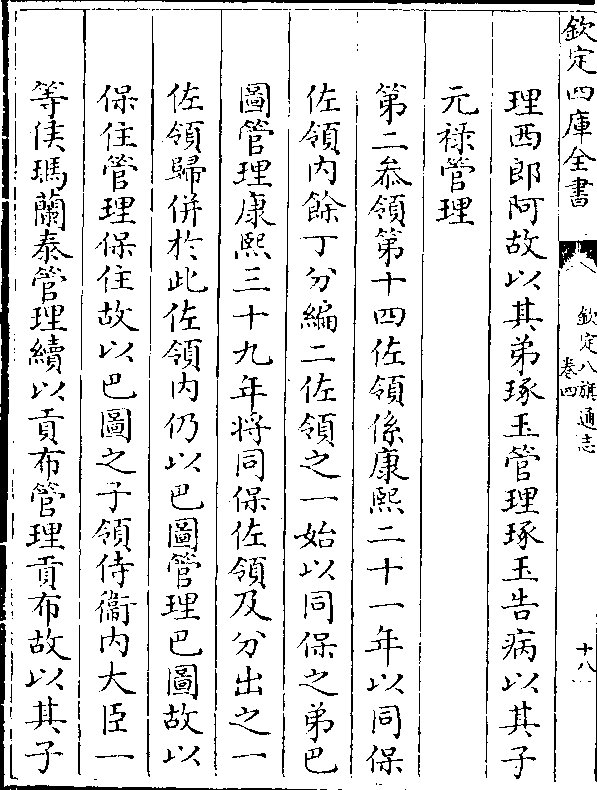 欽定四庫全書
欽定八旗通志
卷四
十八
理西郎阿故以其弟琢玉管理琢玉告病以其子
元祿管理
第二叅領第十四佐領係康熙二十一年以同保
佐領內餘丁分編二佐領之一始以同保之弟巴
圖管理康熙三十九年將同保佐領及分出之一
佐領歸併於此佐領內仍以巴圖管理巴圖故以
保住管理保住故以巴圖之子領侍衞內大臣一
等侯瑪蘭泰管理續以貢布管理貢布故以其子